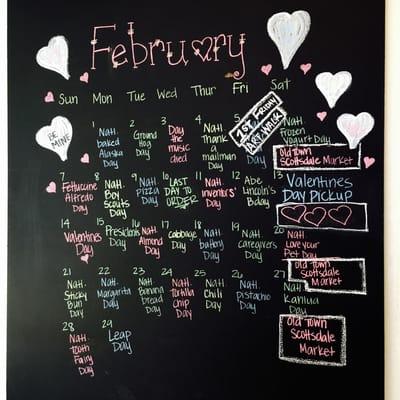 February
Sun Mon Tue Wed Thur Fri Sat
BE MINE
1 Natl. baked Alaska Day
2 Ground Hog Day
3 Day the music died
4 Natl Thank a mailman Day
5 1ST FRIDAY ARTWALK Day
6 Natl Frozen Yogurt Day
Old Town Scottsdale Market
7 Fettuccine Alfredo Day
8 Natl. Boy Scouts Day
9 Natl Pizza Day
10 LAST DAY TO ORDER
11 Natl inventors' Day
12 Abe Lincoln's Bday
13 Valentines Day Pickup
14 Valentines Day
15 Presidents Day
16 Natl Almond Day
17 Cabbage Day
18 Natl battery Day
19 Natl caregivers Day
20 Natl Love your Pet Day
Old Town Scottsdale Market
21 Natl. Sticky Bun Day
22 Natl. Margarita Day
23 Natl Banana bread Day
24 Natl. Tortilla chip Day
25 Natl Chili Day
26 Natl. Pistachio Day
27 Natl. Kahlua Day
Old Town Scottsdale Market
28 Natl. tooth Fairy Day
29 Leap Day